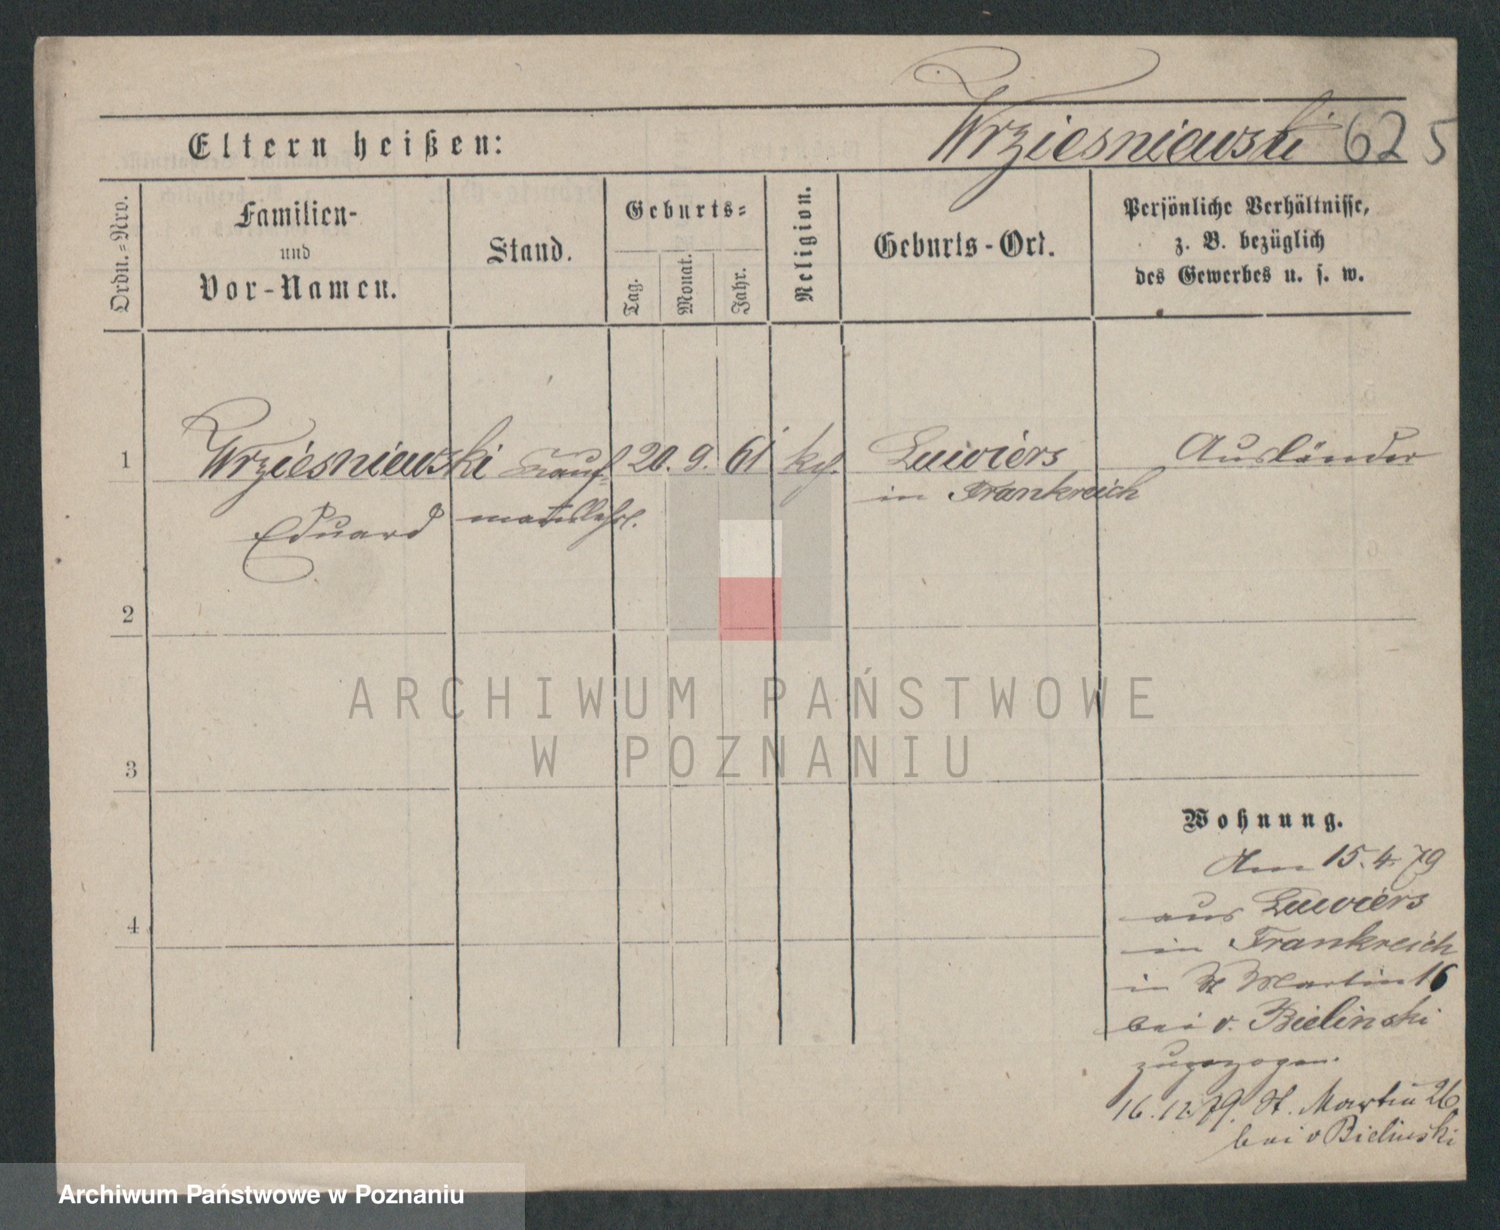 Wrziesniewski 625
Eltern heißen:
Ordn.-Nro.
Familien-
und
Vor-Namen.
Stand.
Geburts-
Tag.
Monat.
Jahr.
Religion.
Geburts-Ort.
Persönliche Verhältnisse,
z. B. bezüglich
des Gewerbes u. s. w.
1 Wrziesniewski Kauf- 20. 9. 61 kth. Luiviers Ausländer
in Frankreich
Eduard mannslehrl.
2
3
4
Wohnung.
Am 15. 4. 79
aus Luiviers
in Frankreich
in St Martin 16
bei v. Bielinski
zugezogen.
16. 12. 79. St. Martin 26
bei v Bielinski
ARCHIWUM PAŃSTWOWE
W POZNANIU
Archiwum Państwowe w Poznaniu